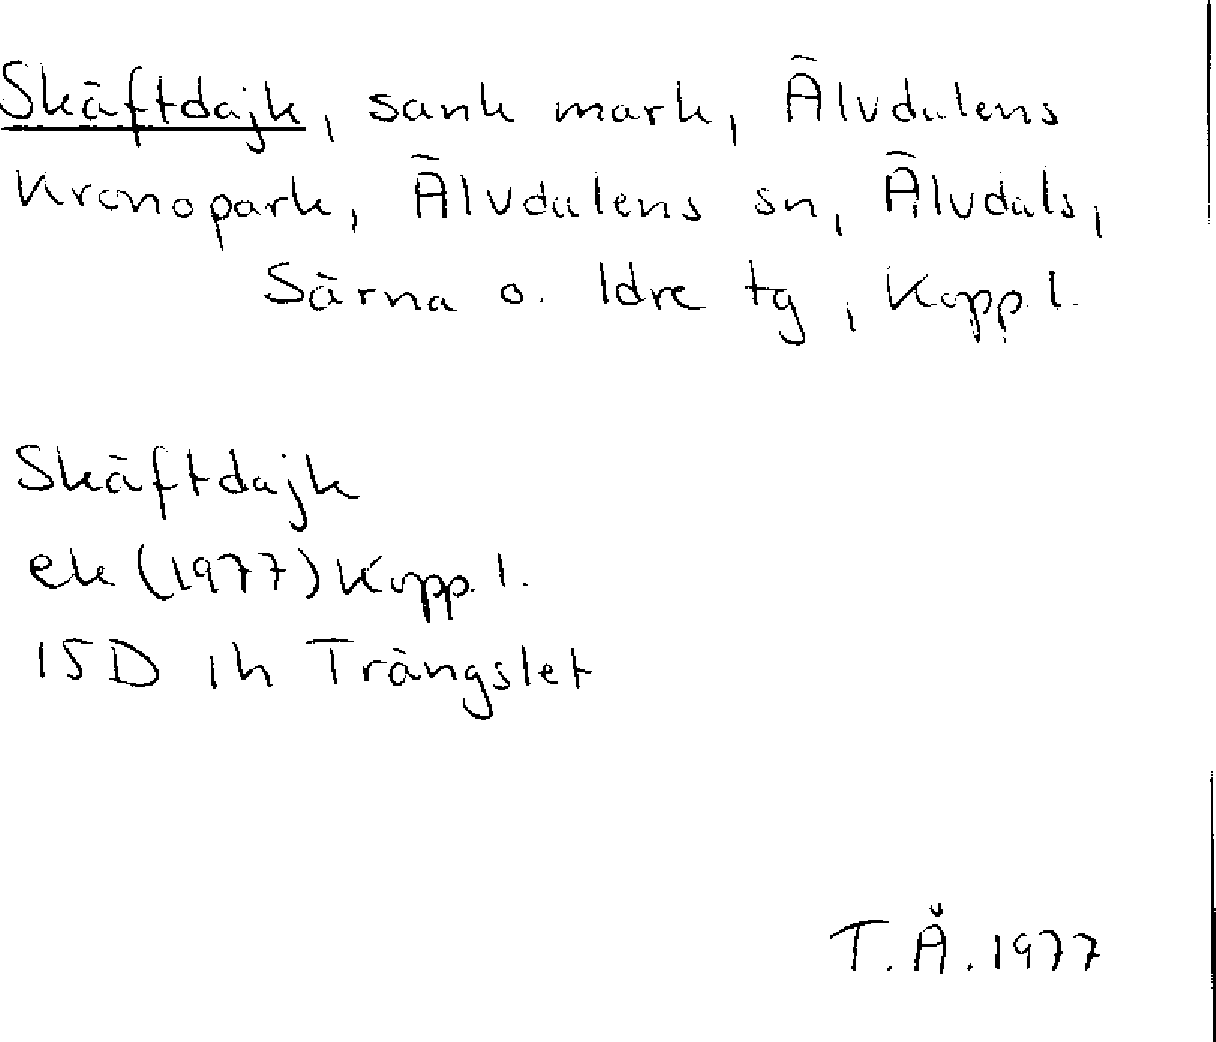 Skäftdajk, sank mark, Älvdalens
Kronopark, Älvdalens sn, Älvdals,
Särna o. Idre tg, Kopp. l.
Skäftdajk
ek (1977) Kopp. l.
15D 1h Trängslet
T.Å. 1977